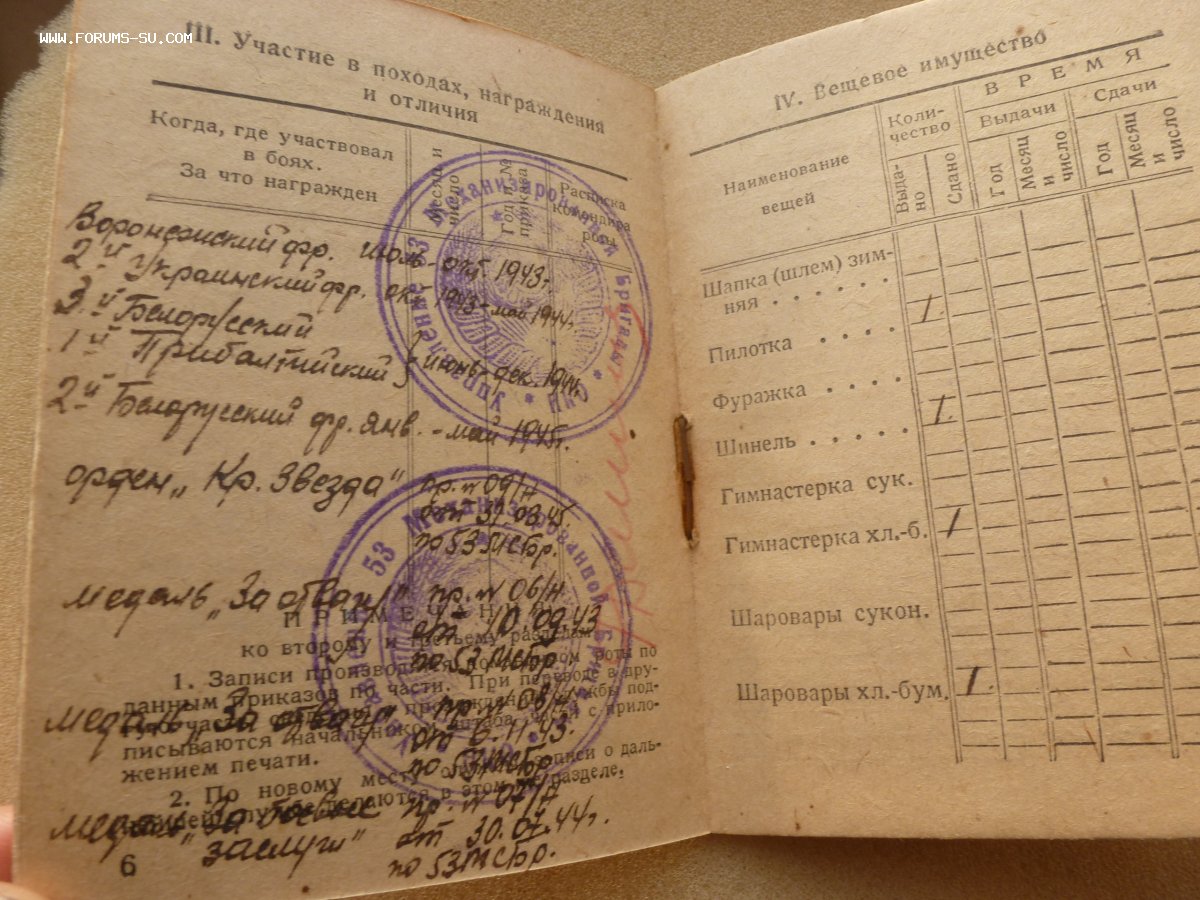 www.forums-su.com
III. Участие в походах, награждения
и отличия
Когда, где участвовал
в боях.
За что награжден
Месяц и
число
Год и №
приказа
Расписка
командира
роты
Воронежский фр. июль - окт 1943г.
2й Украинский фр. окт 1943 - май 1944г.
3й Белорусский
1й Прибалтийский } июнь - дек. 1944г.
2й Белорусский фр. янв. - май 1945г.
орден „Кр. Звезда" пр. № 09/н
от 31.03.45.
по 53 МСБр.
медаль „За отвагу" пр. № 06/н
от 10.09.43
по 53 МСБр
медаль „За отвагу" пр. № 08/н
от 6.11.43.
по 53 МСБр.
медаль „За боевые пр. № 07/н
заслуги" от 30.07.44г.
по 53 МСБр.
Управление 53 Механизированной Бригады
53 Механизированной Бригады
ПРИМЕЧАНИЯ
ко второму и третьему разделам
1. Записи производятся роты по
данным приказов по части. При переводе в дру-
службы под-
писываются начальником штаба части с прило-
жением печати.
2. По новому месту записи о даль-
службе делаются в этом же разделе.
6
IV. Вещевое имущество
Наименование
вещей
Коли-
чество
ВРЕМЯ
Выдачи
Сдачи
Выда-
но
Сдано
Год
Месяц
и
число
Год
Месяц
и
число
Шапка (шлем) зим-
няя . . . . . . 1.
Пилотка . . . .
Фуражка . . . .
Шинель . . . . . 1.
Гимнастерка сук.
Гимнастерка хл.-б. 1
Шаровары сукон.
Шаровары хл.-бум. 1.